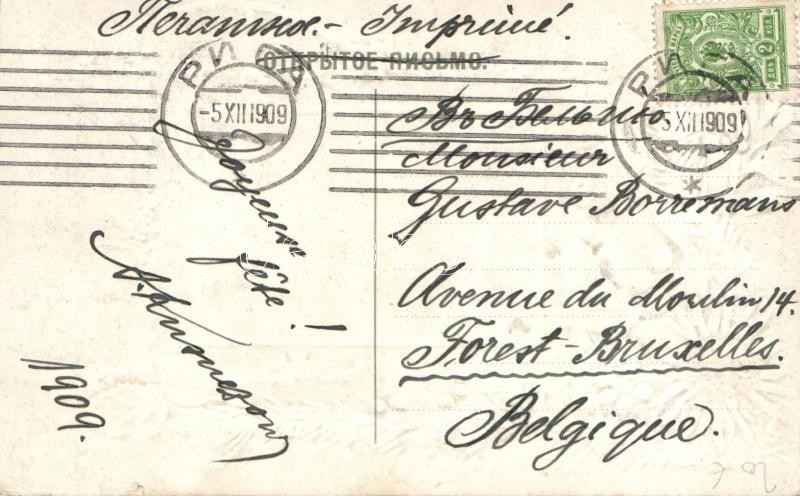 Печатное.- Imprimé.
ОТКРЫТОЕ ПИСЬМО.
РИГА
-5 XII 1909
РИГА
-5 XII 1909
2 КОП
Въ Бельгию
Monsieur
Gustave Borremans
Avenue du Moulin 14.
Forest-Bruxelles.
Belgique.
Joyeuse
fête!
1909.